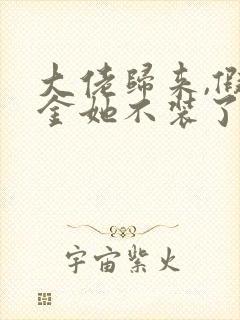 大佬歸来,假
金她不装了
宇宙紫火